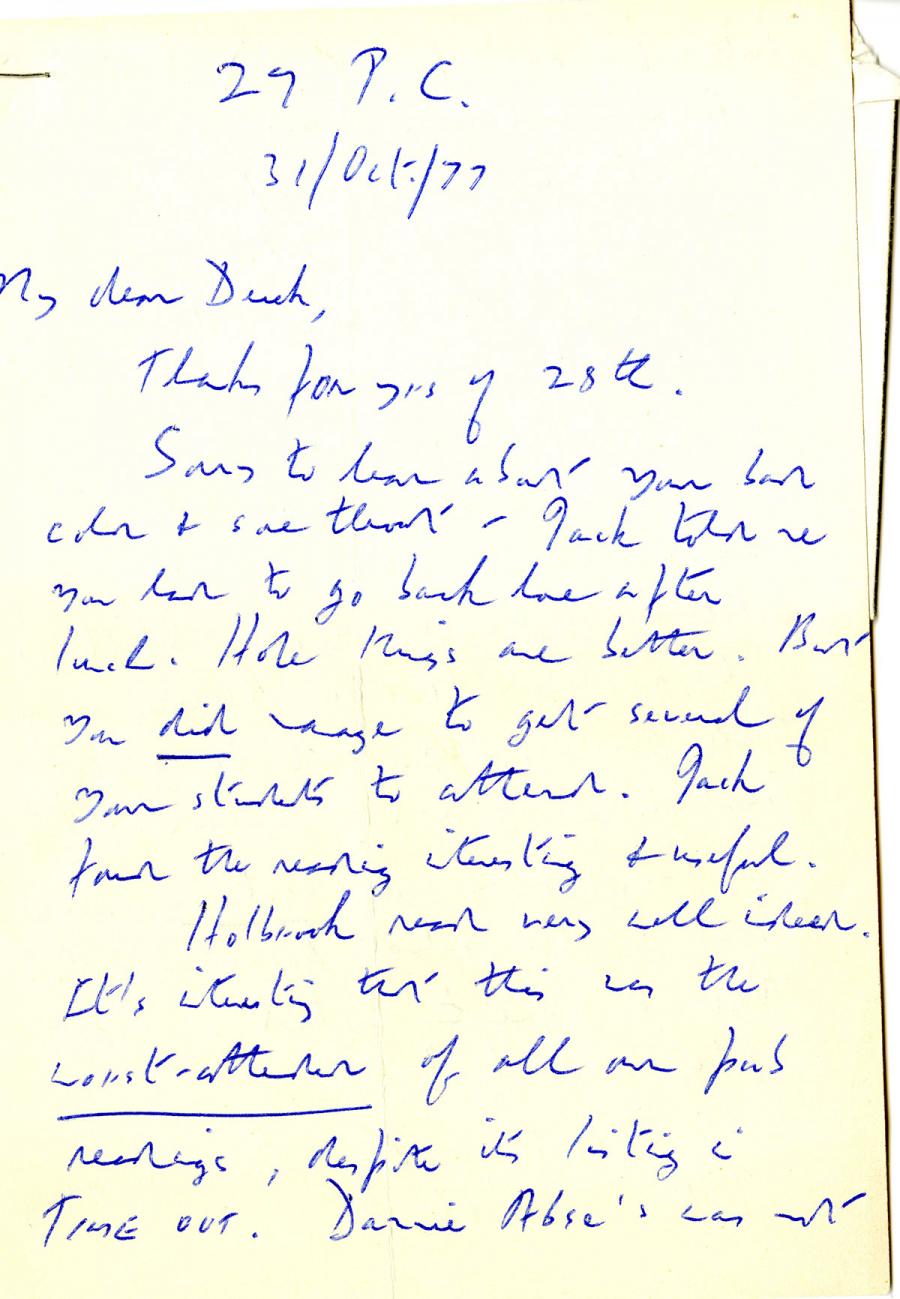 29 P.C.
31/Oct./77
My dear Derek,
Thanks for yrs of 28th.
Sorry to hear about your bad
cold & sore throat - Jack told me
you had to go back home after
lunch. Hope things are better. But
you did manage to get several of
your students to attend. Jack
found the reading interesting & useful.
Holbrook read very well indeed.
It's interesting that this was the
worst-attended of all our pub
readings, despite its listing in
TIME OUT. Dannie Abse's was not